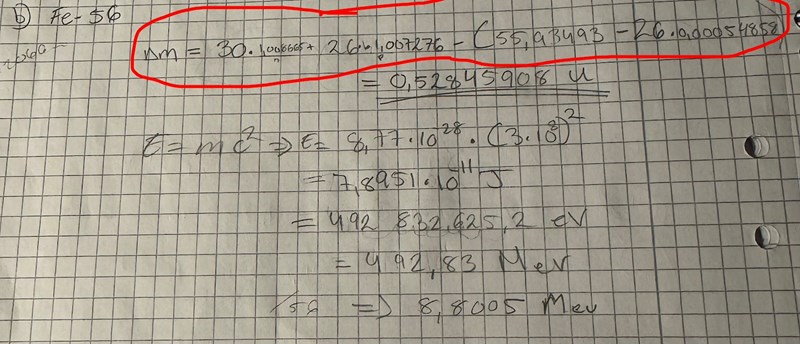 b) Fe-56
Δm = 30·1,008665 + 26·1,007276 - (55,93493 - 26·0,00054858)
= 0,52845908 u
E = mc² => E = 8,77·10²⁸·(3·10⁸)²
= 7,8951·10⁻¹¹ J
= 492 832,625,2 eV
= 492,83 MeV
/56 => 8,8005 Mev